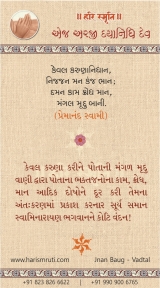 ॥ હરિ સ્મૃતિ ॥
એજ અરજી દયાનિધિ દેવ
કેવલ કરુણાનિધાન,
નિજજન મન કંજ ભાન;
દમન કામ ક્રોધ માન,
મંગલ મૃદુ બાની.
(પ્રેમાનંદ સ્વામી)
કેવળ કરુણા કરીને પોતાની મંગળ મૃદુ
વાણી દ્વારા પોતાના ભક્તજનોના કામ, ક્રોધ,
માન આદિક દોષોને દૂર કરી તેમના
અંતઃકરણમાં પ્રકાશ કરનાર સૂર્ય સમાન
સ્વામિનારાયણ ભગવાનને કોટિ વંદન!
www.harismruti.com
Jnan Baug - Vadtal
+91 823 826 6622
+91 990 900 6765